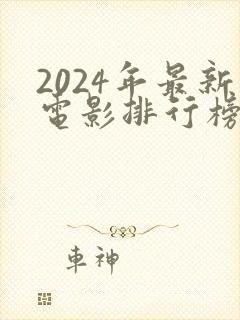 2024年最新
電影排行榜
車神